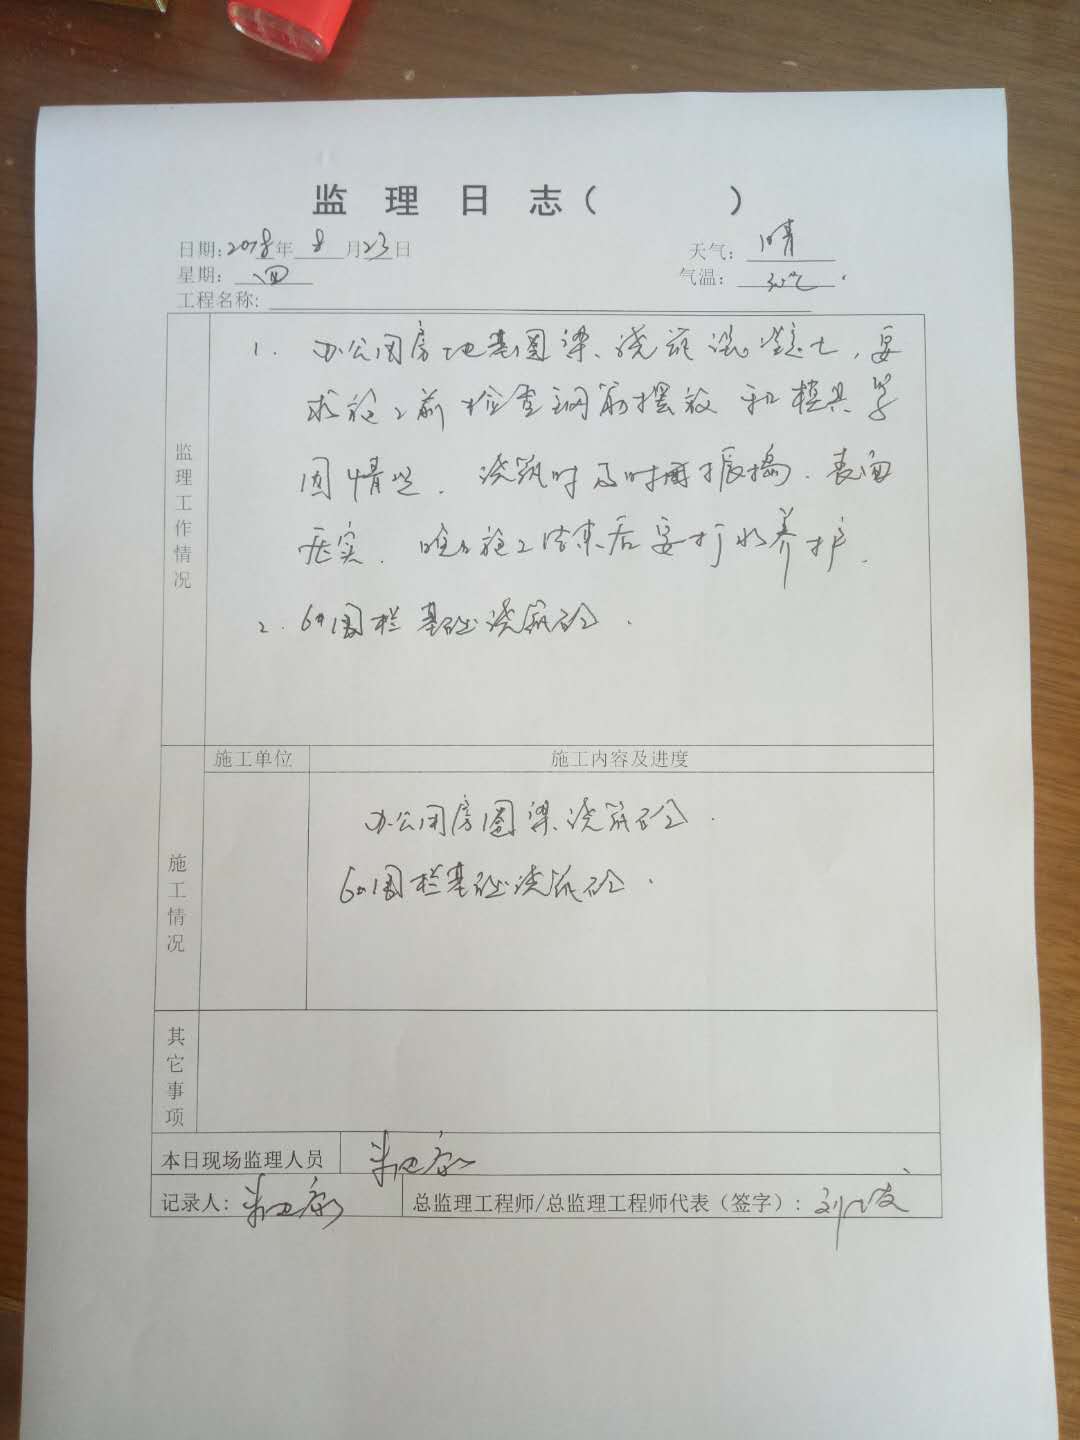 监 理 日 志（ ）
日期：2018年 8 月23日 天气：晴
星期：四 气温：
工程名称：
监理工作情况
1. 办公用房地基圈梁、浇筑混凝土，要
求施工前检查钢筋摆放和模具牢
固情况．浇筑时及时用振捣．表面
压实． 施工结束后要打水养护．
2. 6#围栏基础浇筑砼．
施工单位 施工内容及进度
施工情况
办公用房圈梁浇筑砼．
6#围栏基础浇筑砼．
其它事项
本日现场监理人员
记录人： 总监理工程师/总监理工程师代表（签字）：